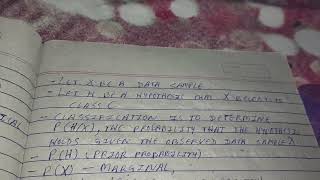 - LET X BE A DATA SAMPLE
- LET H BE A HYPOTHESIS THAT X BELONGS TO
CLASS C
- CLASSIFICATION IS TO DETERMINE
P(H/X), THE PROBABILITY THAT THE HYPOTHESIS
HOLDS GIVEN THE OBSERVED DATA SAMPLE X
- P(H) (PRIOR PROBABILITY)
- P(X) - MARGINAL,